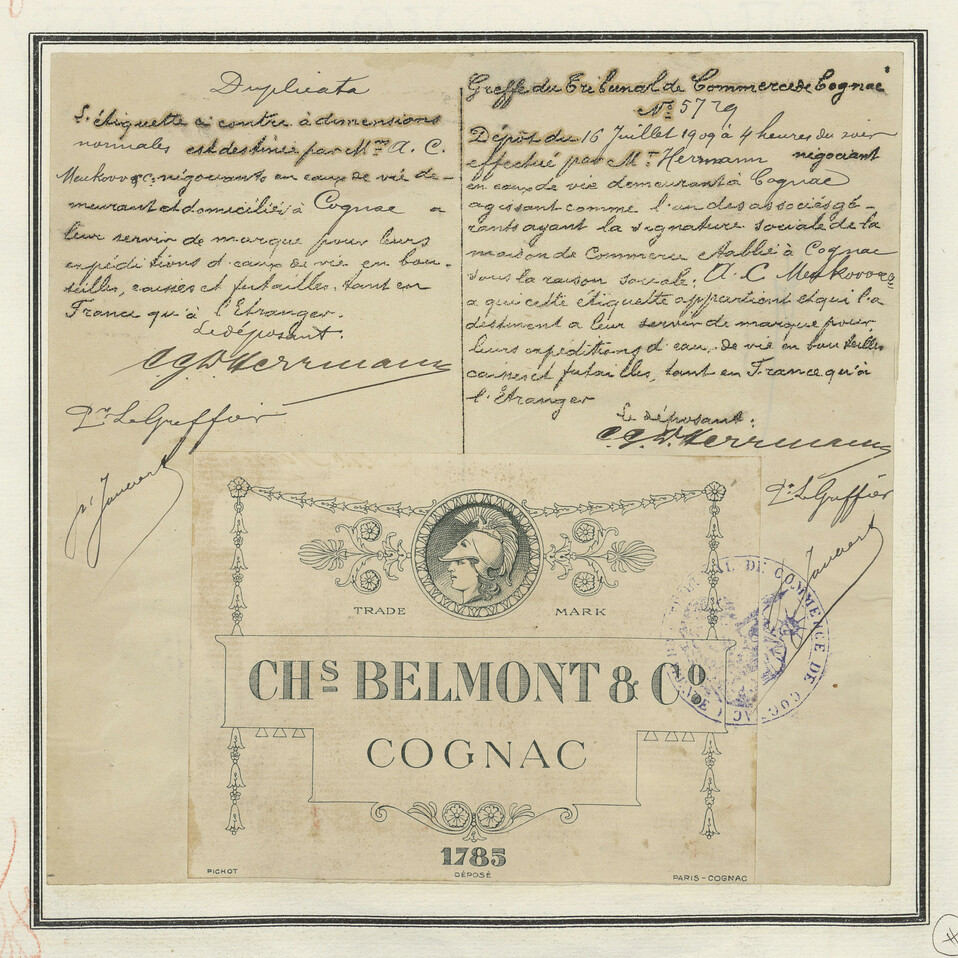 Duplicata
L'étiquette ci contre à dimensions
normales est destinée par Mrs A. C.
Meukow & Co négociants en eaux de vie de-
meurant et domiciliés à Cognac a
leur servir de marque pour leurs
expéditions d'eaux de vie en bou-
teilles, caisses et futailles, tant en
France qu'à l'Etranger.
Le déposant.
C.G.D. Herrmann
Pr. Le Greffier
Greffe du Tribunal de Commerce de Cognac
No 5779
Dépôt du 16 Juillet 1909 à 4 heures du soir
effectué par Mr Hermann négociant
en eaux de vie demeurant à Cognac
agissant comme l'un des associés gé-
rants ayant la signature sociale de la
maison de Commerce établie à Cognac
sous la raison sociale: A. C. Meukow & Co
a qui cette étiquette appartient et qui l'a
destinent a leur servir de marque pour
leurs expéditions d'eau de vie en bouteilles
caisses et futailles, tant en France qu'à
l'Etranger
Le déposant:
C.G.D. Herrmann
Pr. Le Greffier
TRADE MARK
CHS BELMONT & CO
COGNAC
1785
DÉPOSÉ
PICHOT
PARIS-COGNAC
DE COMMERCE DE COGNAC